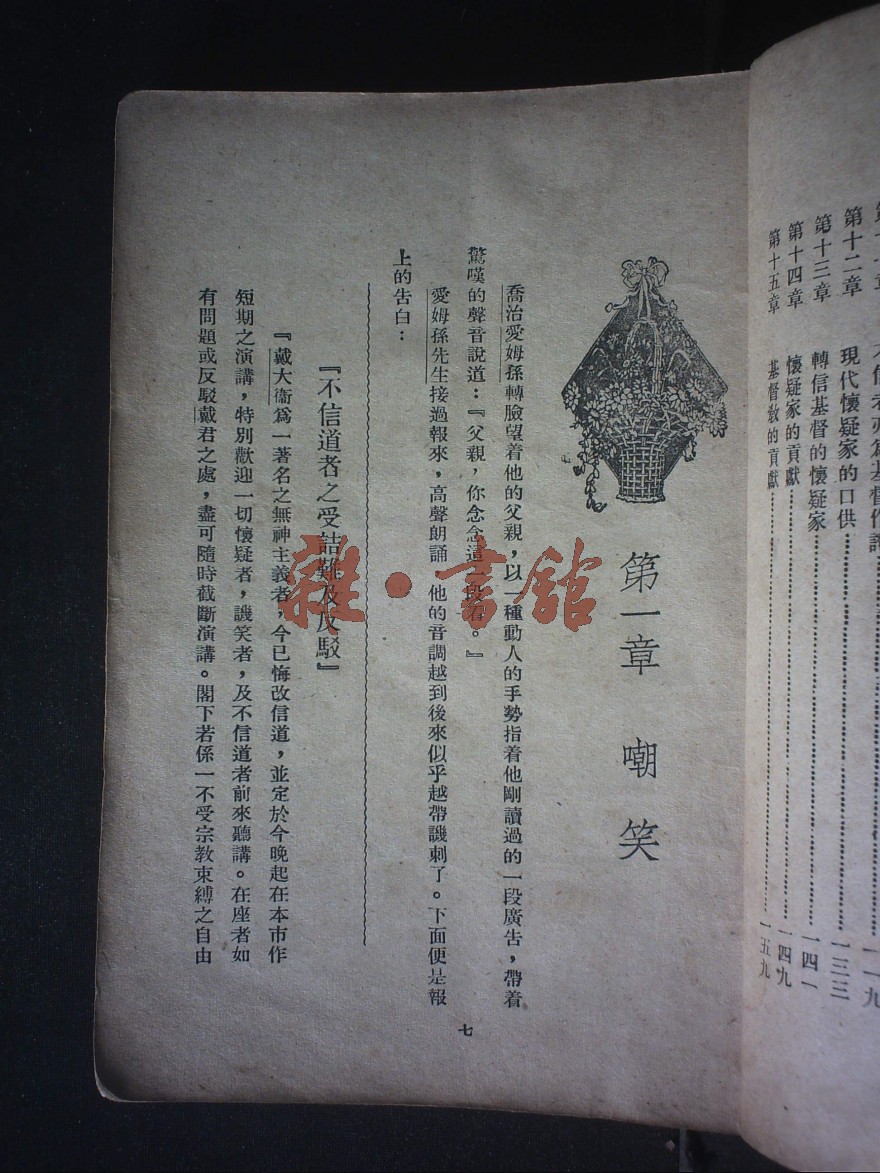 第十二章 現代懷疑家的口供 一三三
第十三章 轉信基督的懷疑家 一四一
第十四章 懷疑家的貢獻 一四九
第十五章 基督教的貢獻 一五九
第一章 嘲笑
喬治愛姆孫轉臉望着他的父親，以一種動人的手勢指着他剛讀過的一段廣告，帶着
驚嘆的聲音說道：『父親，你念念這一段看。』
愛姆孫先生接過報來，高聲朗誦，他的音調越到後來似乎越帶譏刺了。下面便是報
上的告白：
『不信道者之受詰難及反駁』
『戴大衞爲一著名之無神主義者，今已悔改信道，並定於今晚起在本市作
短期之演講，特別歡迎一切懷疑者，譏笑者，及不信道者前來聽講。在座者如
有問題或反駁戴君之處，盡可隨時截斷演講。閣下若係一不受宗教束縛之自由
七
雜·書館